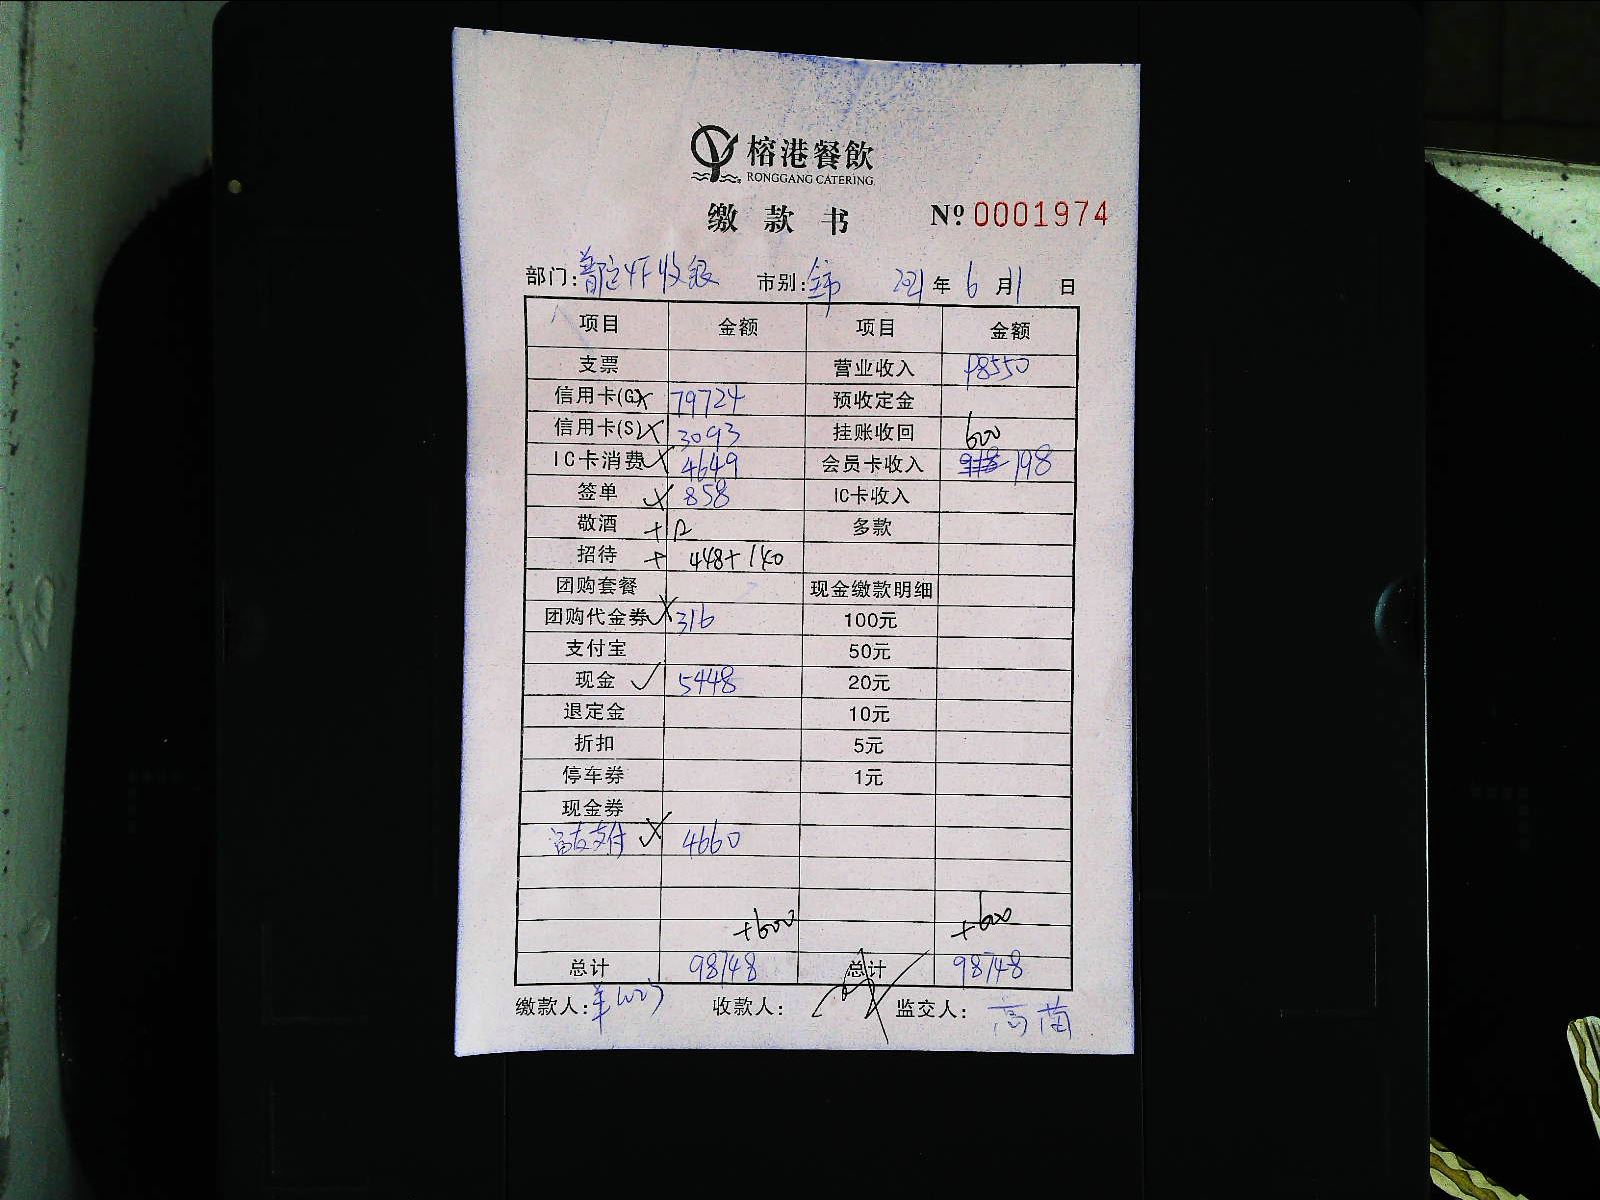 榕港餐飲
RONGGANG CATERING
缴款书 Nº 0001974
部门: 收银 市别:全市 2021年6月11日
项目 金额 项目 金额
支票 营业收入 98550
信用卡(G) 79724 预收定金
信用卡(S) 3093 挂账收回 600
IC卡消费 4649 会员卡收入 198
签单 858 IC卡收入
敬酒 + 12 多款
招待 + 448+140
团购套餐 现金缴款明细
团购代金券 316 100元
支付宝 50元
现金 5448 20元
退定金 10元
折扣 5元
停车券 1元
现金券
富友支付 4660
+600 +600
总计 98748 总计 98748
缴款人: 收款人: 监交人: 高苗